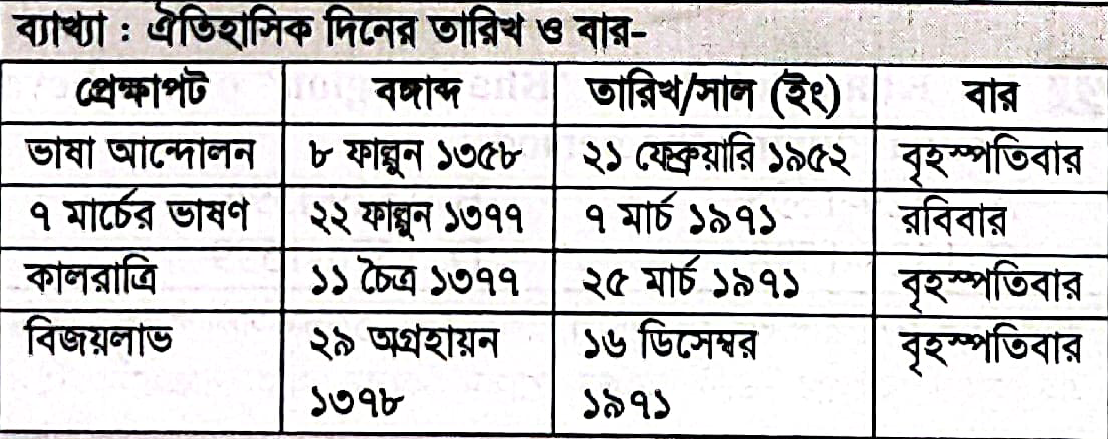 ব্যাখ্যা : ঐতিহাসিক দিনের তারিখ ও বার-
প্রেক্ষাপট বঙ্গাব্দ তারিখ/সাল (ইং) বার
ভাষা আন্দোলন ৮ ফাল্গুন ১৩৫৮ ২১ ফেব্রুয়ারি ১৯৫২ বৃহস্পতিবার
৭ মার্চের ভাষণ ২২ ফাল্গুন ১৩৭৭ ৭ মার্চ ১৯৭১ রবিবার
কালরাত্রি ১১ চৈত্র ১৩৭৭ ২৫ মার্চ ১৯৭১ বৃহস্পতিবার
বিজয়লাভ ২৯ অগ্রহায়ন ১৬ ডিসেম্বর বৃহস্পতিবার
১৩৭৮ ১৯৭১